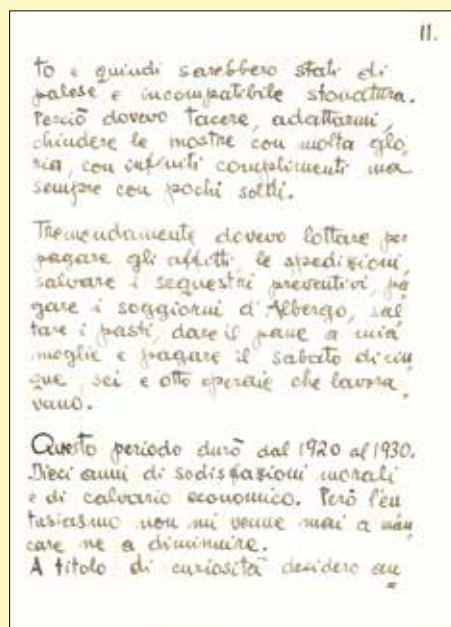 11.
to e quindi sarebbero stati di
palese e incompatibile stonatura.
Perciò dovevo tacere, adattarmi,
chiudere le mostre con molta glo,
ria, con infiniti complimenti ma
sempre con pochi soldi.
Tremendamente dovevo lottare per
pagare gli affitti, le spedizioni,
salvare i sequestri preventivi, pa
gare i soggiorni d'Albergo, sal
tare i pasti, dare il pane a mia
moglie e pagare il sabato di cin
que, sei e otto operaie che lavora,
vano.
Questo periodo durò dal 1920 al 1930.
Dieci anni di sodisfazioni morali
e di calvario economico. Però l'en
tusiasmo non mi venne mai a man
care ne a diminuire.
A titolo di curiosità desidero an
=